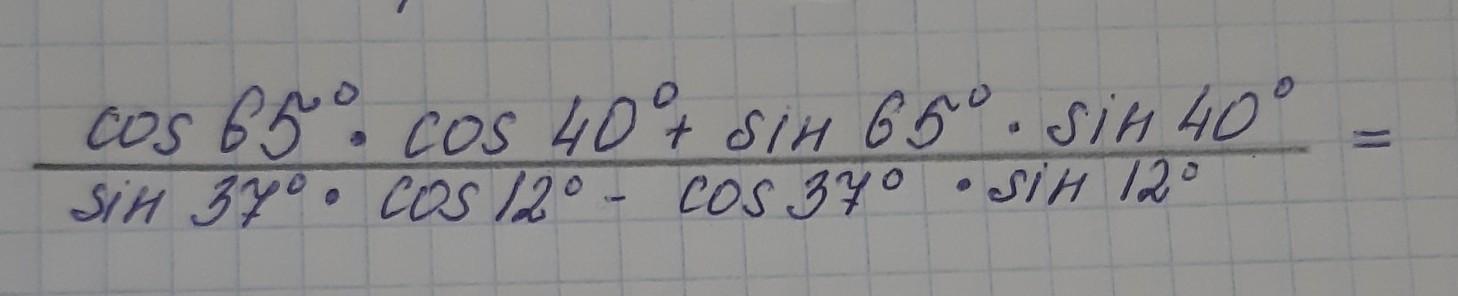 cos 65° · cos 40° + sin 65° · sin 40° =
sin 37° · cos 12° - cos 37° · sin 12°